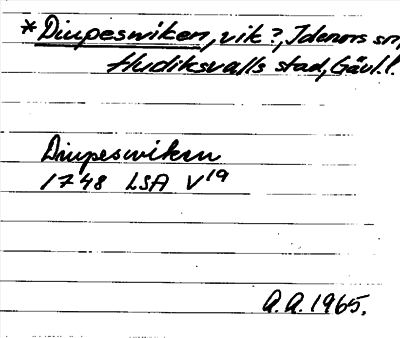 *Diupeswiken, vik?, Idenors sn,
Hudiksvalls stad, Gävl.l.
Diupeswiken
1748 LSA V19
A.A. 1965.